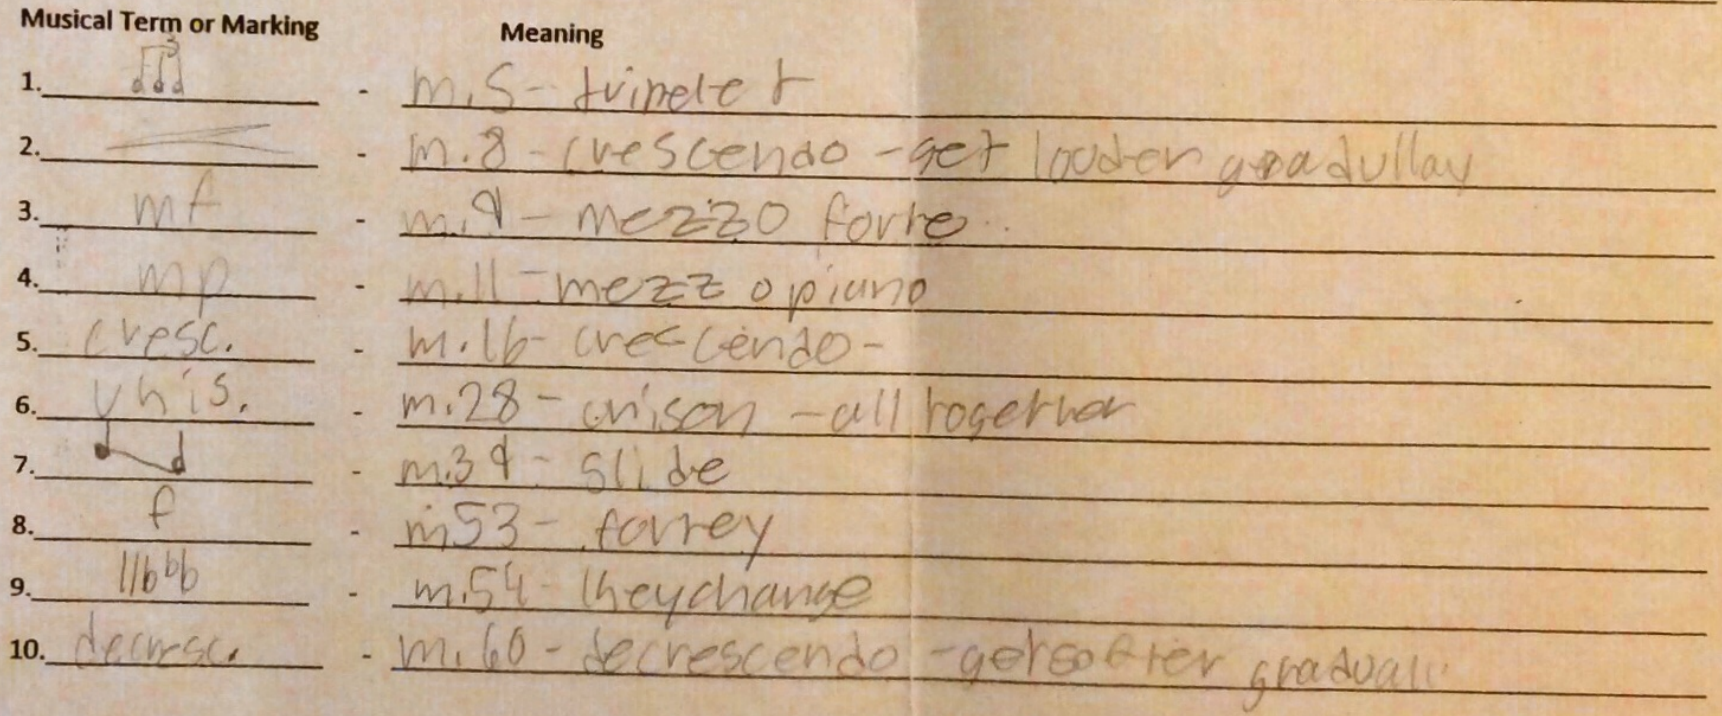 Musical Term or Marking Meaning
1. 3 - m.5- tripelet
2. - m.8 - crescendo - get louder gradullay
3. mf - m.9 - mezzo forte
4. mp - m.11 - mezzo piano
5. cresc. - m.16- crescendo -
6. unis. - m.28 - unison - all together
7. - m.39 - slide
8. f - m53 - fortey
9. ||bbb - m.54 - keychange
10. decrsc. - m.60 - decrescendo - get softer graduall